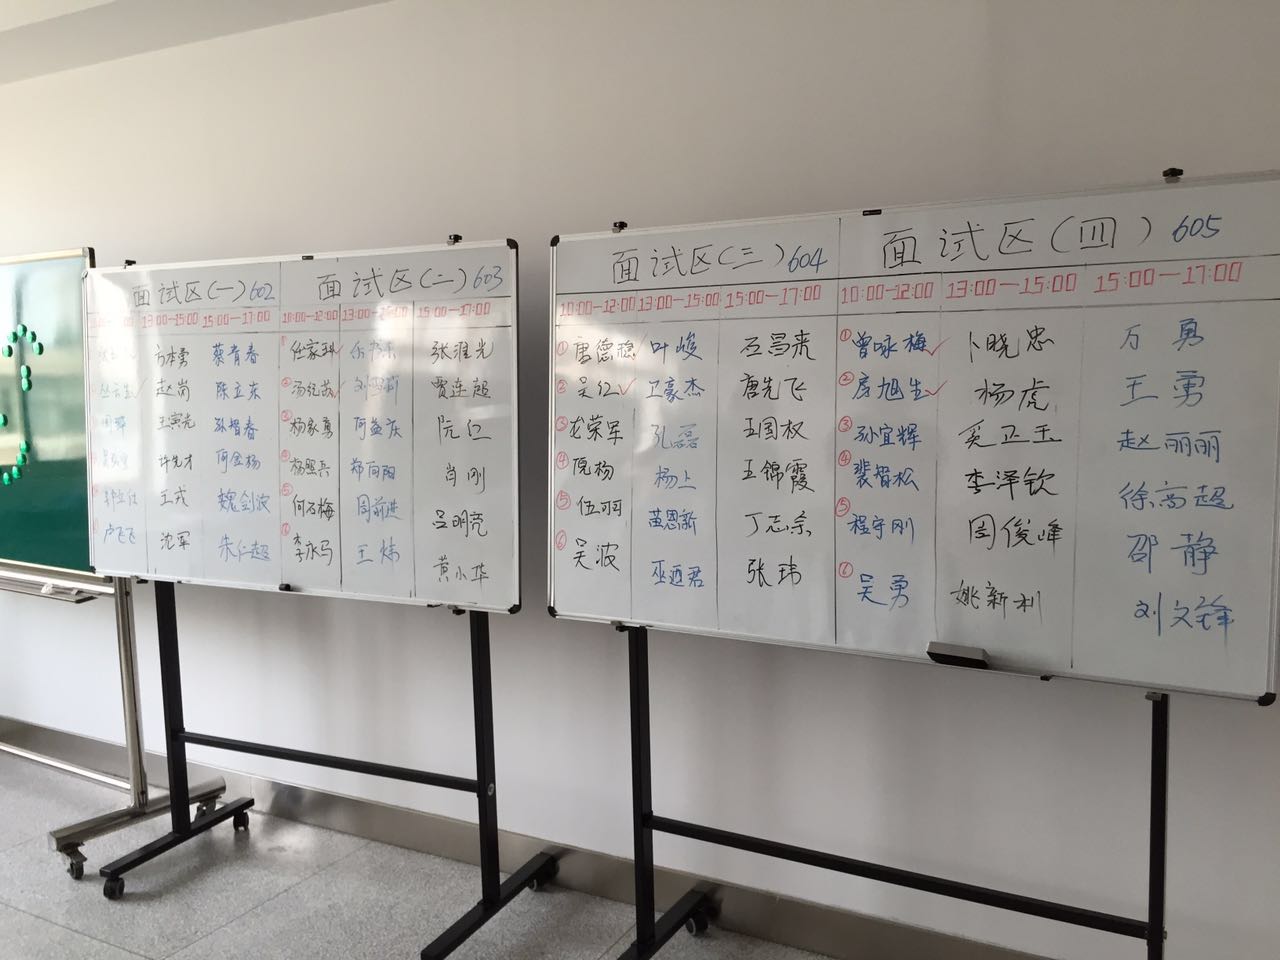 面试区(一)602
面试区(二)603
13:00-15:00 15:00-17:00
10:00-12:00 15:00-17:00
方本勇 蔡肯春 任家琪 张淮光
赵岗 陈立东 ② 贾连超
王寅光 孙智春 ③ 杨家勇 何益庆 阮仁
许先才 何金杨 ④ 杨照兵 郑向阳 肖刚
王戎 魏剑波 ⑤ 何石梅 周前进 吕明亮
卢飞飞 沈军 朱仁超 ⑥ 李永马 王炜 黄小华
面试区(三)604
面试区(四)605
10:00-12:00 13:00-15:00 15:00-17:00
10:00-12:00 13:00-15:00 15:00-17:00
① 唐德稳 叶峻 石昌来 ① 曾咏梅 卜晓忠 万勇
② 吴仁 卫豪杰 唐先飞 ② 房旭生 杨虎 王勇
③ 龙荣军 孔磊 王国权 ③ 孙宜辉 奚正玉 赵丽丽
④ 倪杨 杨上 王锦霞 ④ 裴智松 李泽钦 徐高超
⑤ 伍羽 苗恩新 丁志宗 ⑤ 程守刚 周俊峰 邵静
⑥ 吴波 巫迺君 张玮 ⑥ 吴勇 姚新利 刘文锋